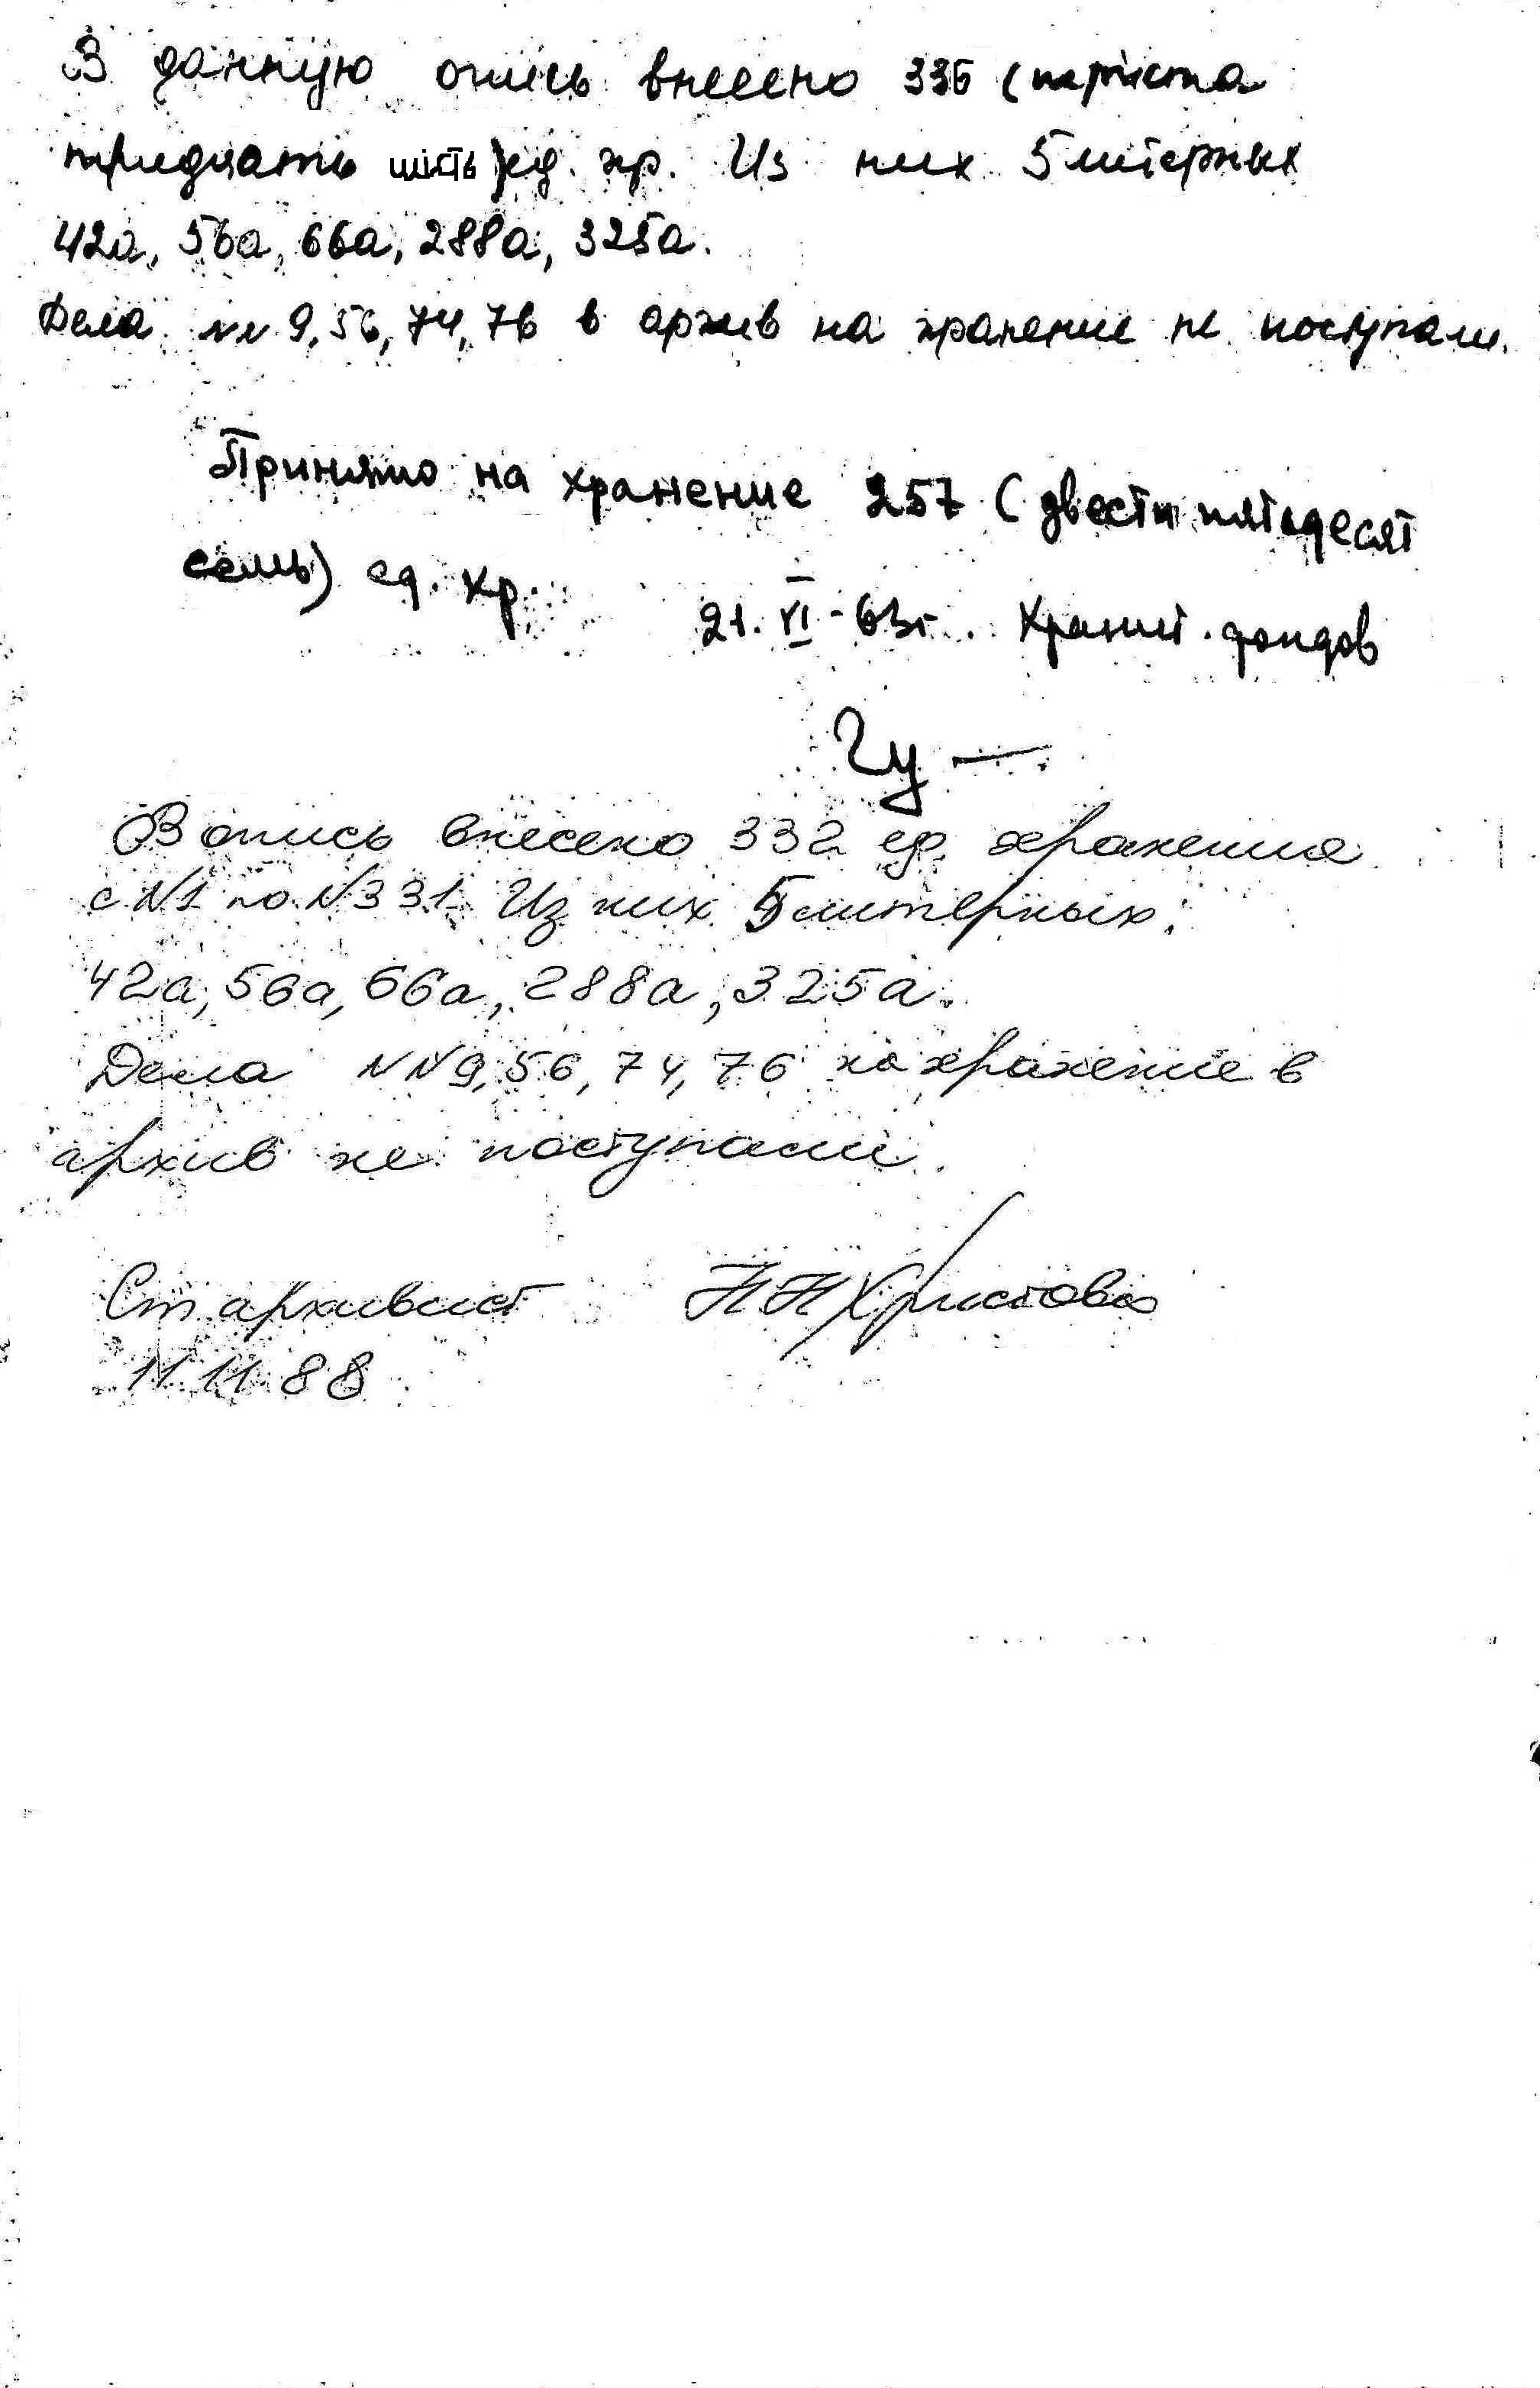 В данную опись внесено 336 (триста
тридцать шість) ед. хр. Из них 5 литерных
42а, 56а, 66а, 288а, 325а.
Дела NN 9, 56, 74, 76 в архив на хранение не поступали.
Принято на хранение 257 (двести пятьдесят
семь) ед. хр.
21. VI - 63г. Хранит. фондов
В опись внесено 332 ед. хранения
с N1 по N331. Из них 5 литерных:
42а, 56а, 66а, 288а, 325а.
Дела NN 9, 56, 74, 76 на хранение в
архив не поступали.
Ст архивист НН Христова
11.11.88